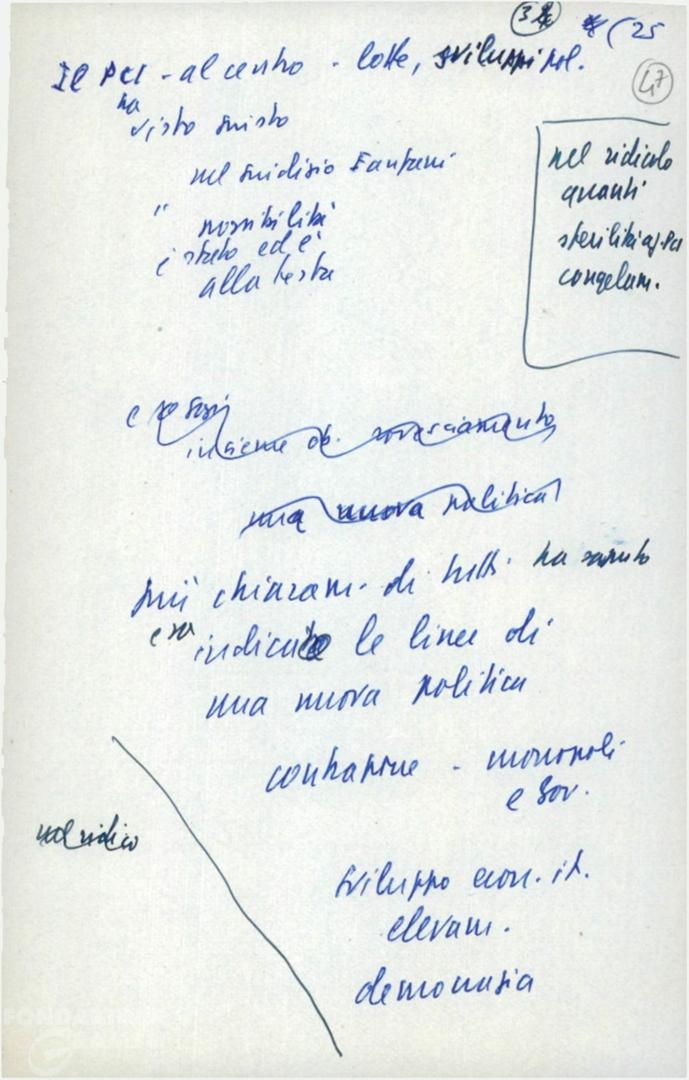 (25
47
Il PCI - al centro - lotte, sviluppi pol.
ha
visto giusto
nel giudizio Fanfani
" possibilità
è stato ed è
alla testa
nel ridicolo
quanti
sterilità az. PCI
congelam.
e
insieme di rovesciamento
una nuova politica
più chiaram. di tutti ha saputo
e sa indicare le linee di
una nuova politica
contrapporre - monopoli
e gov.
nel ridico
sviluppo econ. it.
elevam.
democrazia